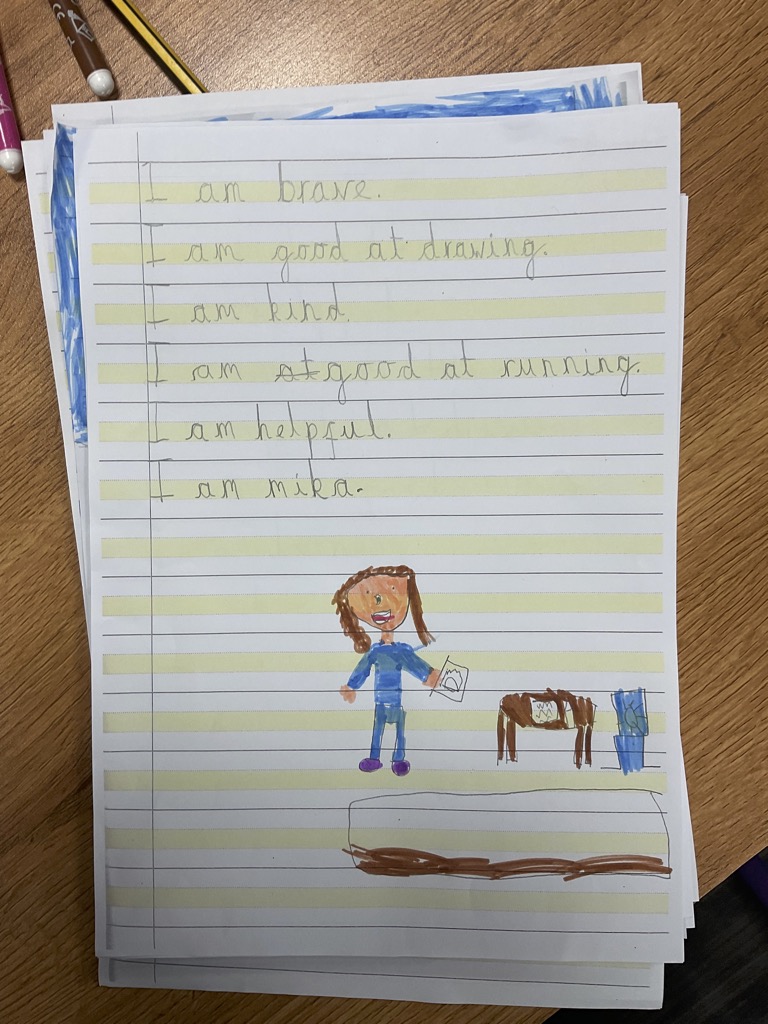 I am brave.
I am good at drawing.
I am kind.
I am at good at running.
I am helpful.
I am mika.